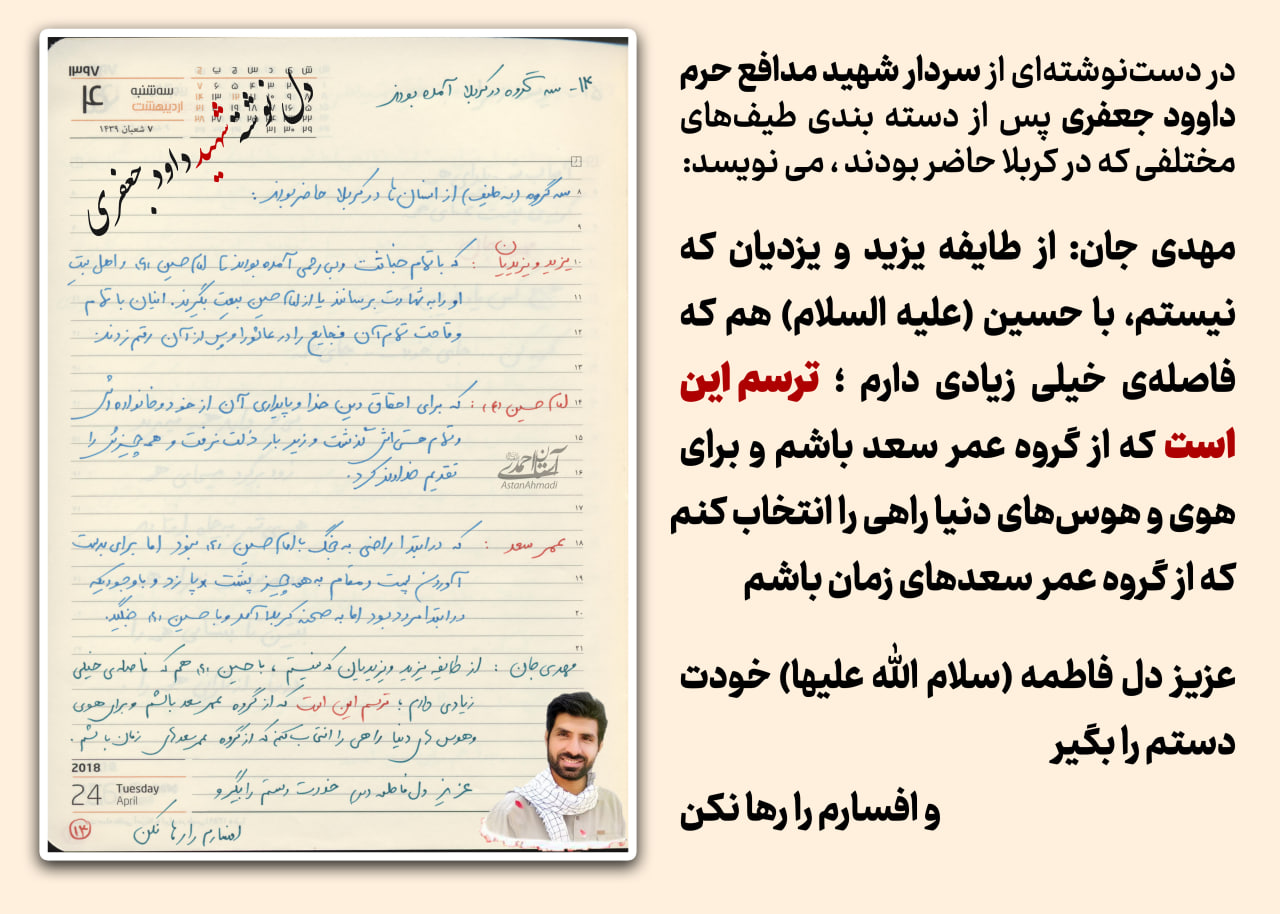 در دست‌نوشته‌ای از سردار شهید مدافع حرم
داوود جعفری پس از دسته بندی طیف‌های
مختلفی که در کربلا حاضر بودند ، می نویسد:
مهدی جان: از طایفه یزید و یزدیان که
نیستم، با حسین (علیه السلام) هم که
فاصله‌ی خیلی زیادی دارم ؛ ترسم این
است که از گروه عمر سعد باشم و برای
هوی و هوس‌های دنیا راهی را انتخاب کنم
که از گروه عمر سعدهای زمان باشم
عزیز دل فاطمه (سلام الله علیها) خودت
دستم را بگیر
و افسارم را رها نکن
۱۳۹۷
۴
سه‌شنبه
اردیبهشت
۷ شعبان ۱۴۳۹
دل نوشته شهید داود جعفری
۱۴- سه گروه در کربلا آمده بودند
سه گروه (سه طیف) از انسان ها در کربلا حاضر بودند :
یزید و یزیدیان : که با تمام خباثت و بی رحمی آمده بودند تا امام حسین (ع) و اهل بیت
او را به شهادت برسانند یا از امام حسین بیعت بگیرند. اینان با تمام
وقاحت تمام آن فجایع را در عاشورا و پس از آن رقم زدند.
امام حسین (ع) : که برای احقاق دین خدا و پایداری آن از خود و خانواده اش
و تمام هستی اش گذشت و زیر بار ذلت نرفت و همه چیزش را
تقدیم خداوند کرد.
آستان احمدی
AstanAhmadi
عمر سعد : که در ابتدا راضی به جنگ با امام حسین (ع) نبود اما برای بدست
آوردن پست و مقام به همه چیز پشت پا زد و با وجودیکه
در ابتدا مردد بود اما به صحنه کربلا آمد و با حسین (ع) جنگید.
مهدی جان : از طایفه یزید و یزیدیان که نیستم ، با حسین (ع) هم که فاصله‌ی خیلی
زیادی دارم ؛ ترسم این است که از گروه عمر سعد باشم و برای هوی
و هوس های دنیا راهی را انتخاب کنم که از گروه عمر سعدهای زمان باشم.
عزیز دل فاطمه (س) خودت دستم را بگیر و
افسارم را رها نکن
2018
24 Tuesday
April
۱۴